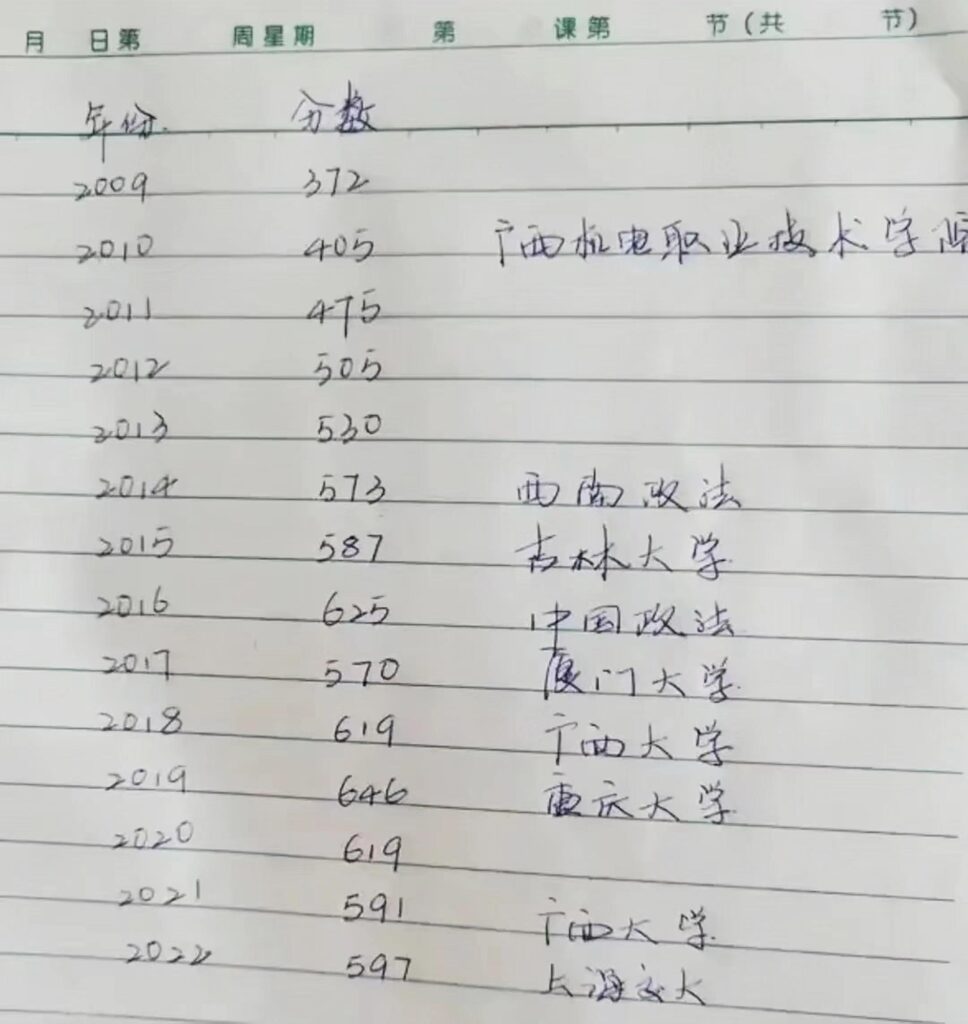 月 日第 周星期 第 课第 节(共 节)
年份. 分数
2009 372
2010 405 广西机电职业技术学院
2011 475
2012 505
2013 530
2014 573 西南政法
2015 587 吉林大学
2016 625 中国政法
2017 570 厦门大学
2018 619 广西大学
2019 646 重庆大学
2020 619
2021 591 广西大学
2022 597 上海交大